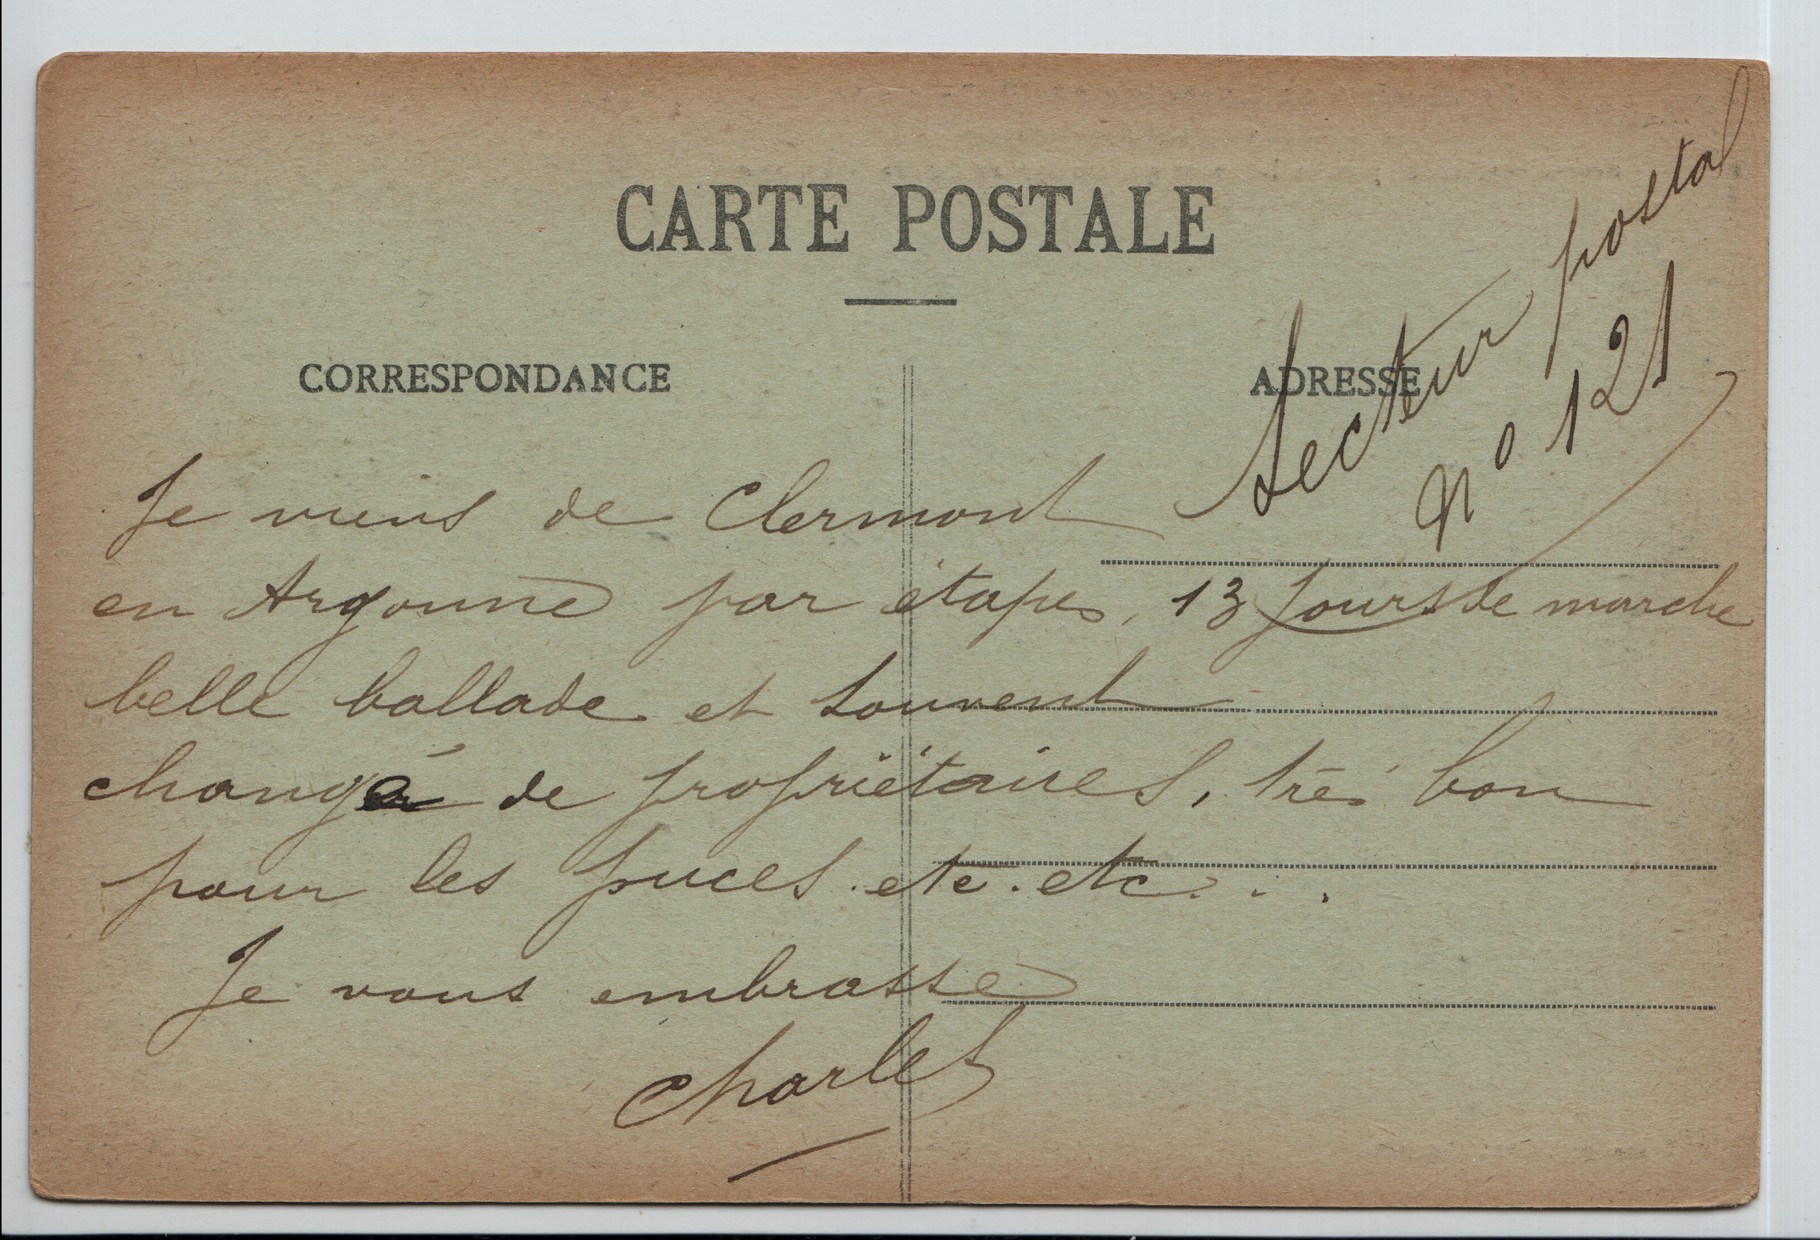 CARTE POSTALE
CORRESPONDANCE
ADRESSE
Secteur postal
N° 121
Je viens de Clermont
en Argonne par étapes, 13 jours de marche
belle ballade et souvent
changé de propriétaires, très bon
pour les puces. etc. etc...
Je vous embrasse
Charles